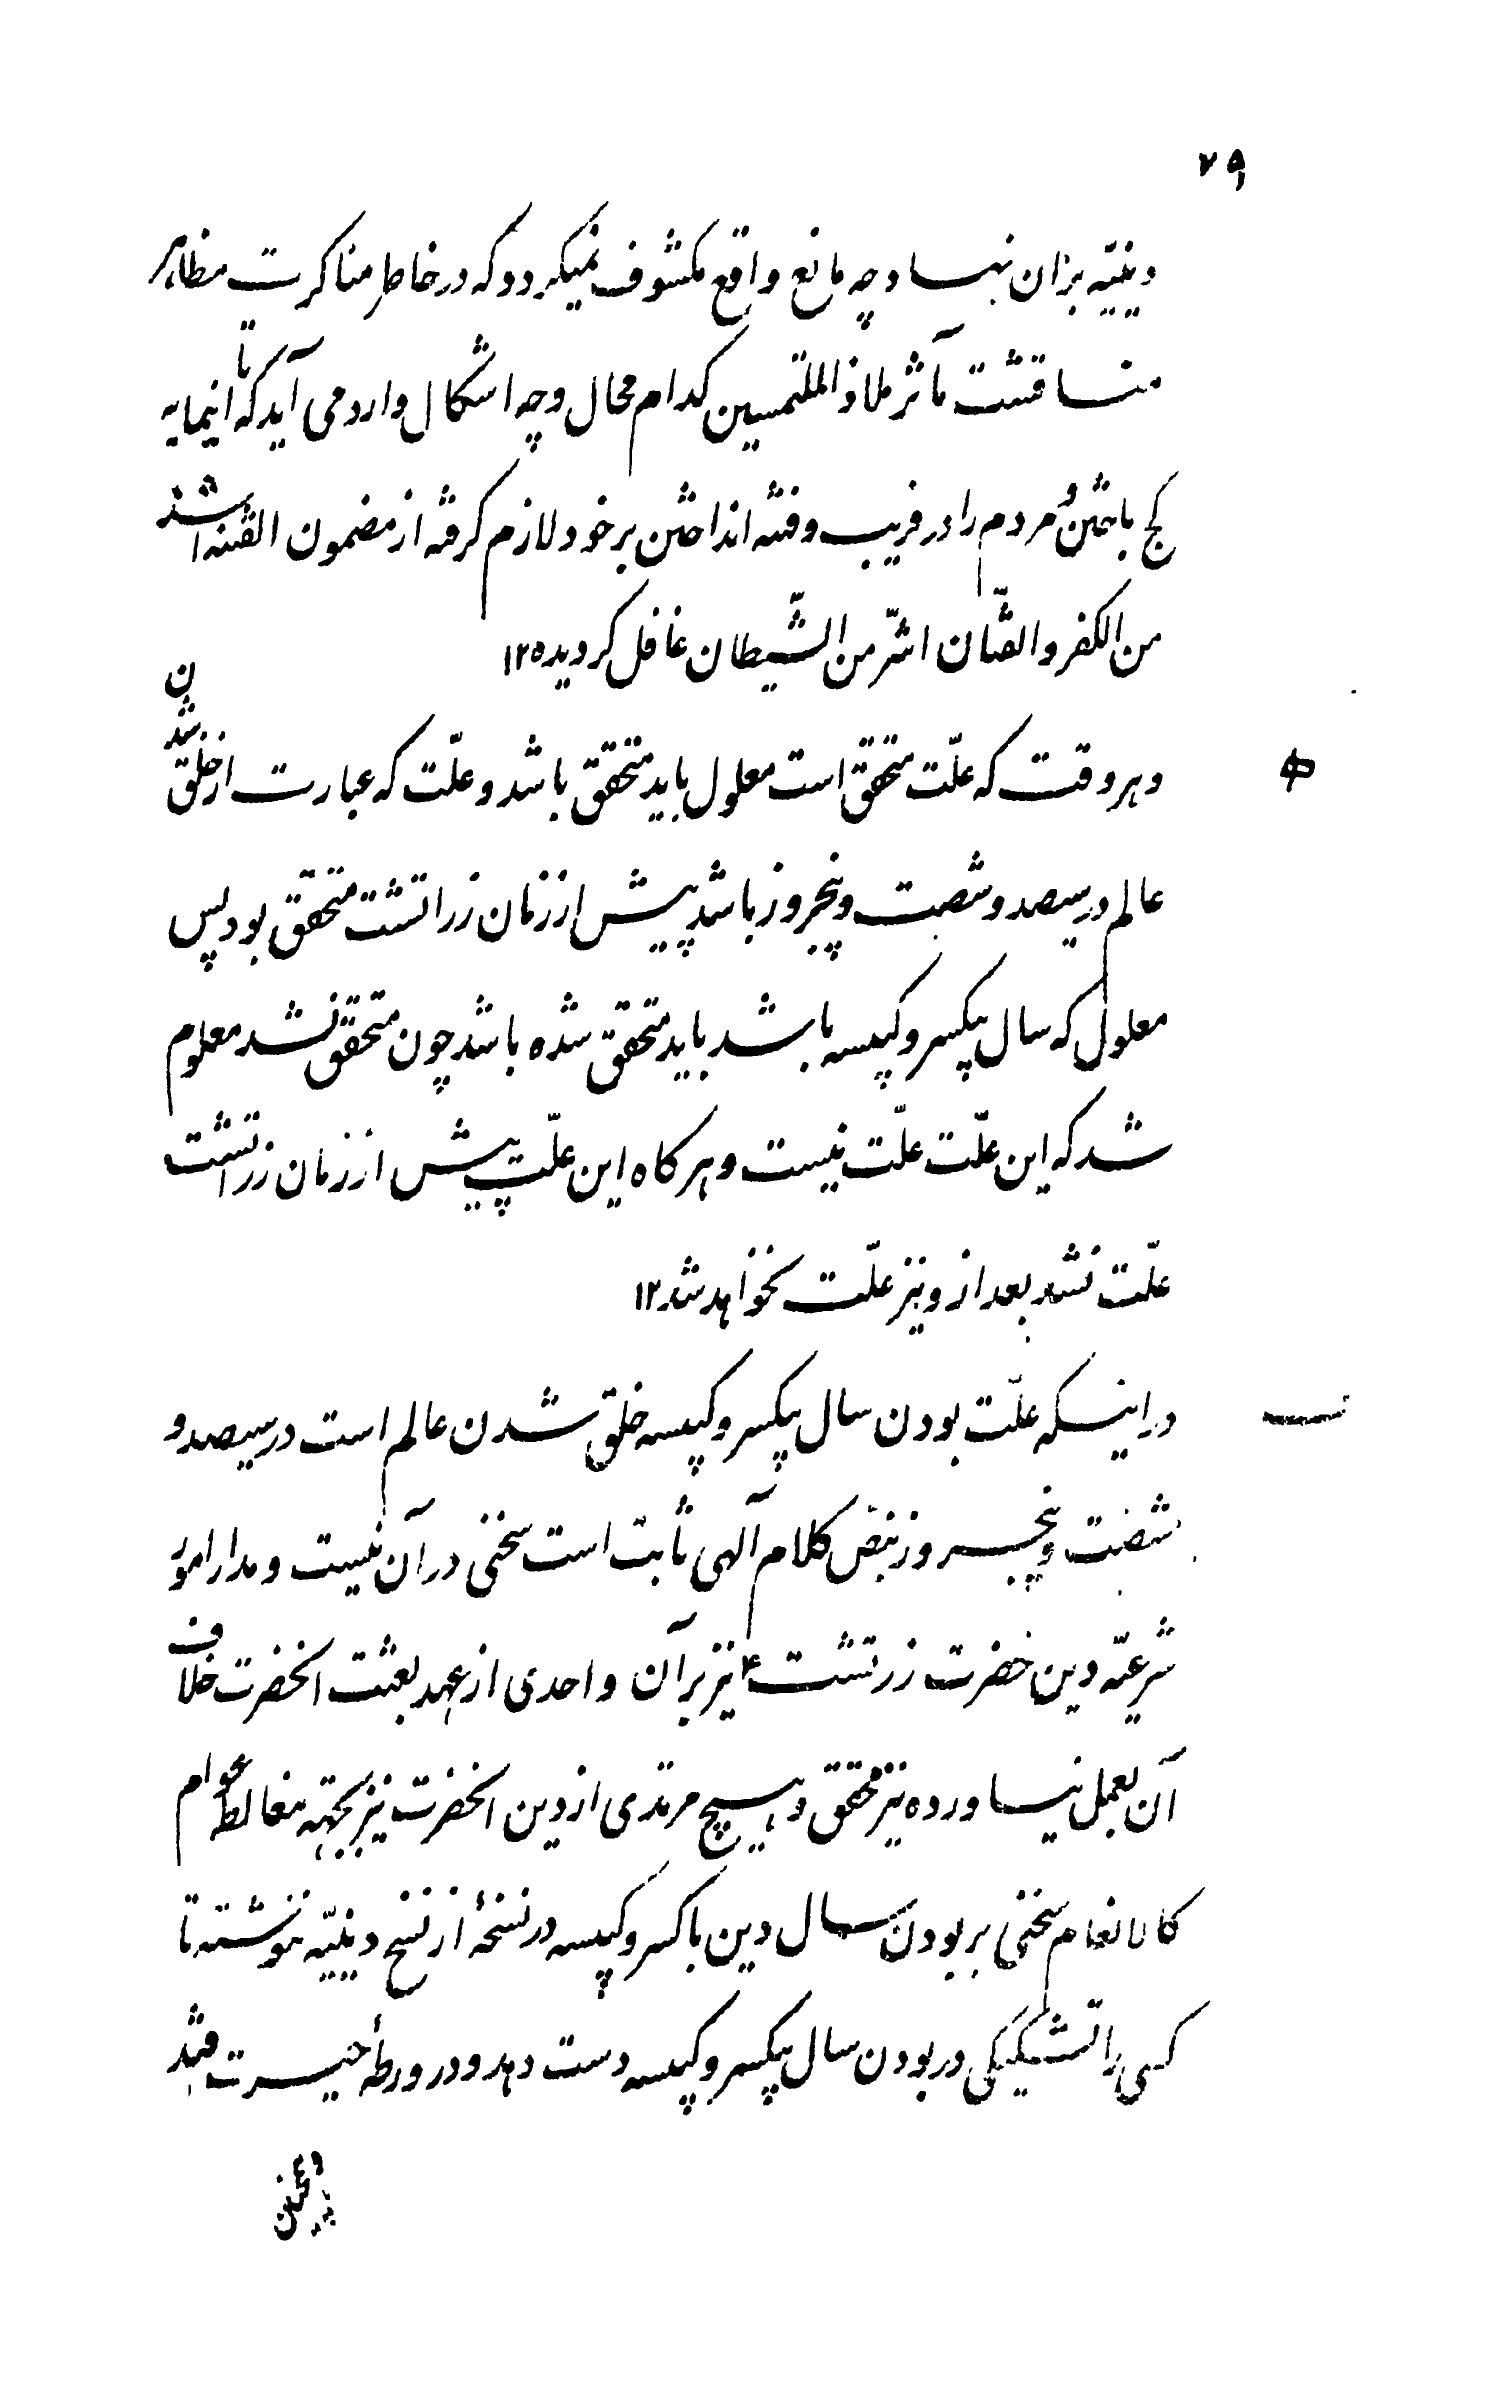 ۷۹
دینیّه بزان نهاد چه مانع واقع مکشوف نمیکردد که در خاطر مناکرت مظاهر
مناقشت مآثر ملاذ الملتمسین کدام محال و چه اشکال وارد می آید که تا اینمایه
کج باختن و مردم را در فریب و فتنه انداختن بر خود لازم کرفته از مضمون الفتنه اشد
من الکفر والفتّان اشرّ من الشّیطان غافل کردیده ۱۲
و هر وقت که علّت متحقق است معلول باید متحقق باشد و علّت که عبارت از خلق شدن
عالم در سیصد و شصت و پنجروز باشد پیش از زمان زراتشت متحقق بود پس
معلول که سال بیکسر و کبیسه باشد باید متحقق شده باشد چون متحقق نشد معلوم
شد که این علّت علّت نیست و هر کاه این علّت پیش از زمان زراتشت
علّت نشد بعد ازو نیز علّت نخواهد شد ۱۲
در اینکه علّت بودن سال بیکسر و کبیسه خلق شدن عالم است در سیصد و
شصت و پنجروز بنص کلام آلهی ثابت است سخنی در آن نیست و مدار امور
شرعیّه دین حضرت زرتشت ۴ نیز بر آن و احدی از عهد بعثت انحضرت خلاف
آن بعمل نیاورده نیز محقق و هیچ مرتدی از دین انحضرت نیز بجهته مغالط عوام
کالانعام سخنی بر بودن سال دین با کسر و کبیسه در نسخهٔ از نسخ دینیّه ننوشته تا
کسی را تشکیکی در بودن سال بیکسر و کبیسه دست دهد و در ورطهٔ حیرت فتد